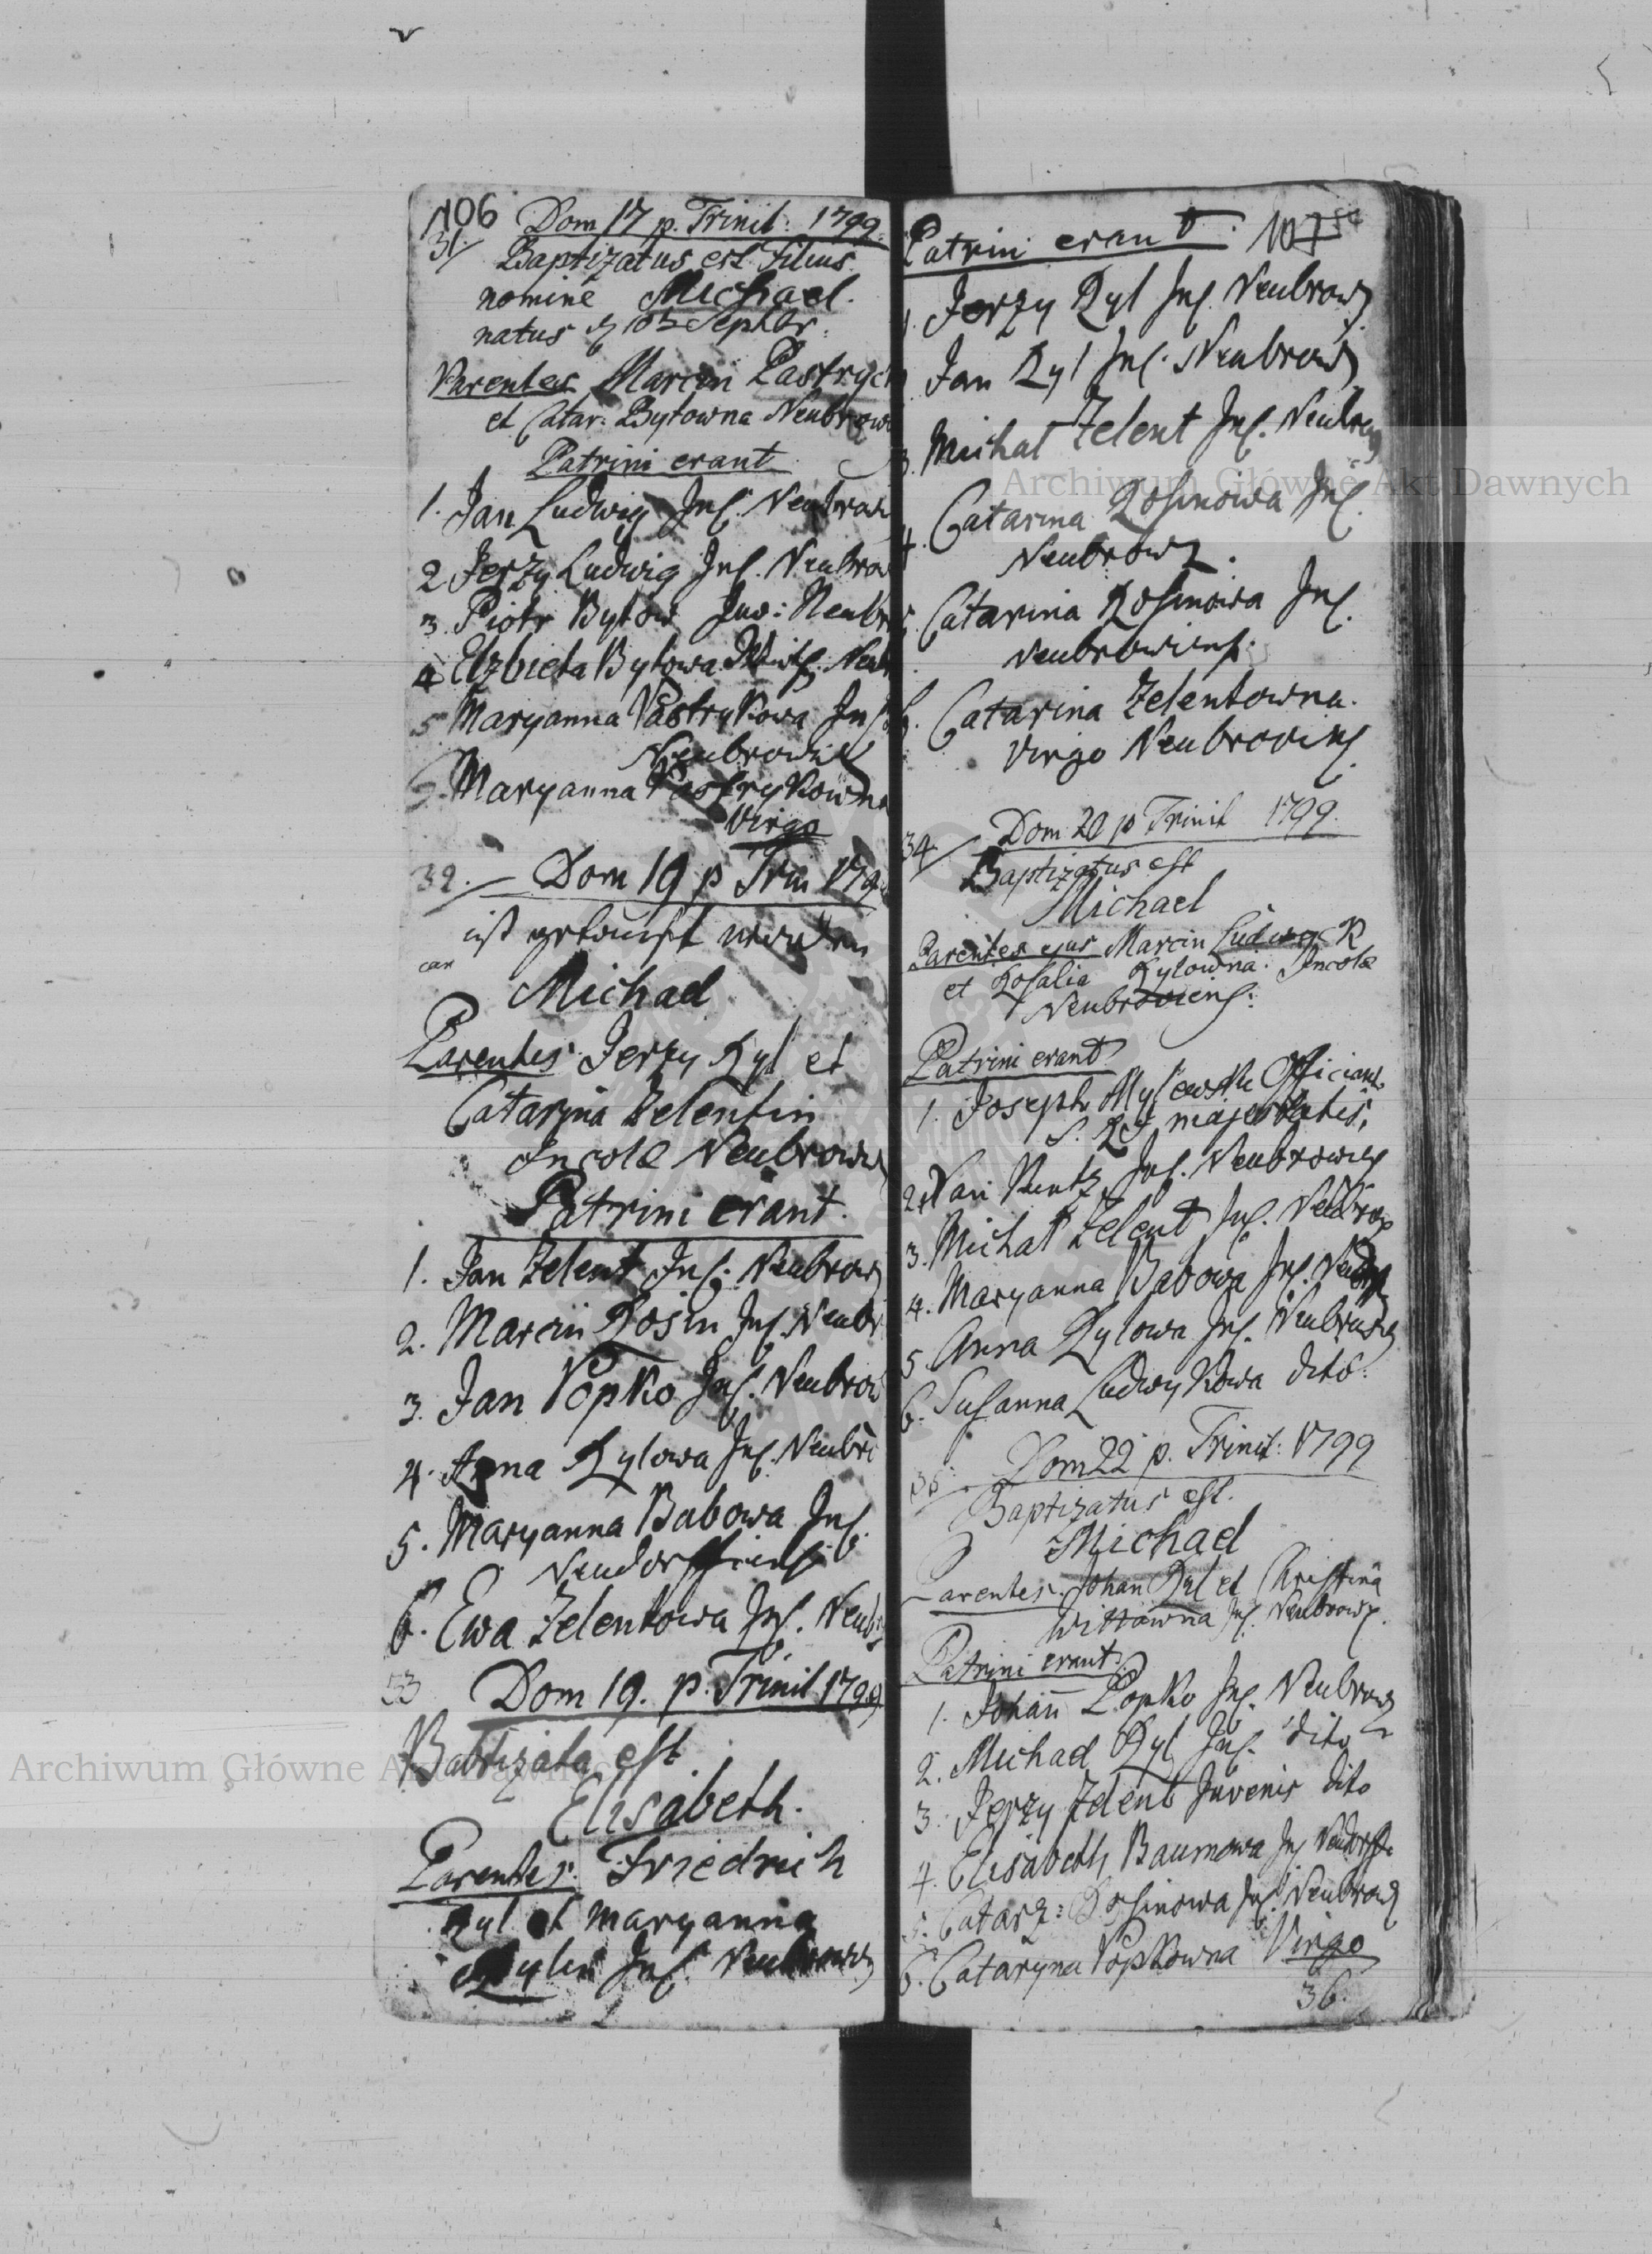 106 Dom 17 p. Trinit: 1799.
31/ Baptizatus est Filius
nomine Michael.
natus d 10 Septbr.
Parentes Marcin Pastryc
et Catar: Bytowna Neubrow
Patrini erant
1. Jan Ludwig Inq. Neubrow
2 Jerzy Ludwig Inq. Neubrow
3 Piotr Bytow Juv: Neubr
4 Elzbieta Bytowa Neub
5 Maryanna Pastrykowa Inq
Neubrowi
6. Maryanna Pastrykowna
Virgo
32. Dom 19 p Trin 179
ist getauft worden
Michael
Parentes Jerzy Ryl et
Cataryna Zelentin
Incolæ Neubrow
Patrini erant.
1. Jan Zelent Inq. Neubrow
2. Marcin Rosin Inq. Neubr
3. Jan Popko Inq. Neubrow
4. Anna Rylowa Inq. Neubr
5. Maryanna Babowa Inq.
Neudorffiens
6. Ewa Zelentowa Inq. Neub
33 Dom 19. p. Trinit 1799
Babtizata est
Elisabeth.
Parentes. Friedrich
Ryl et Maryanna
Inq. Neubrow
Patrini erant. 107
1. Jerzy Ryl Inq. Neubrow
Jan Ryl Inq. Neubrow
3. Michał Zelent Inq. Neubrow
4. Catarina Rosinowa Inq.
Neubrow.
5 Catarina Rosinowa Inq.
Neubroviens.
6. Catarina Zelentowna.
Virgo Neubroviens
34. Dom 20 p Trinit 1799.
Baptizatus est
Michael
Parentes ejus Marcin Ludwig
et Rosalia Rylowna. Incolæ
Neubroviens:
Patrini erant
1. Joseph Officiant
S. R majestatis.
2. Jan Kuntz Inq. Neubrowien
3. Michał Zelent Inq. Neubrow
4. Maryanna Babowa Inq. Neudorf
5. Anna Rylowa Inq. Neubrow
6. Susanna Ludwykowa dito.
35 Dom 22 p. Trinit: 1799
Baptizatus est.
Michael
Parentes. Johan Ryl et Christina
Wittawna Inq. Neubrow.
Patrini erant.
1. Johan Popko Inq. Neubrow
2. Michael Ryl Inq. dito
3. Jerzy Zelent Juvenis dito
4. Elisabeth Baumowa Inq Neudorff
5. Catarz: Rosinowa Inq. Neubrow
6. Cataryna Popkowna Virgo
36.
Archiwum Główne Akt Dawnych
Archiwum Główne Akt Dawnych